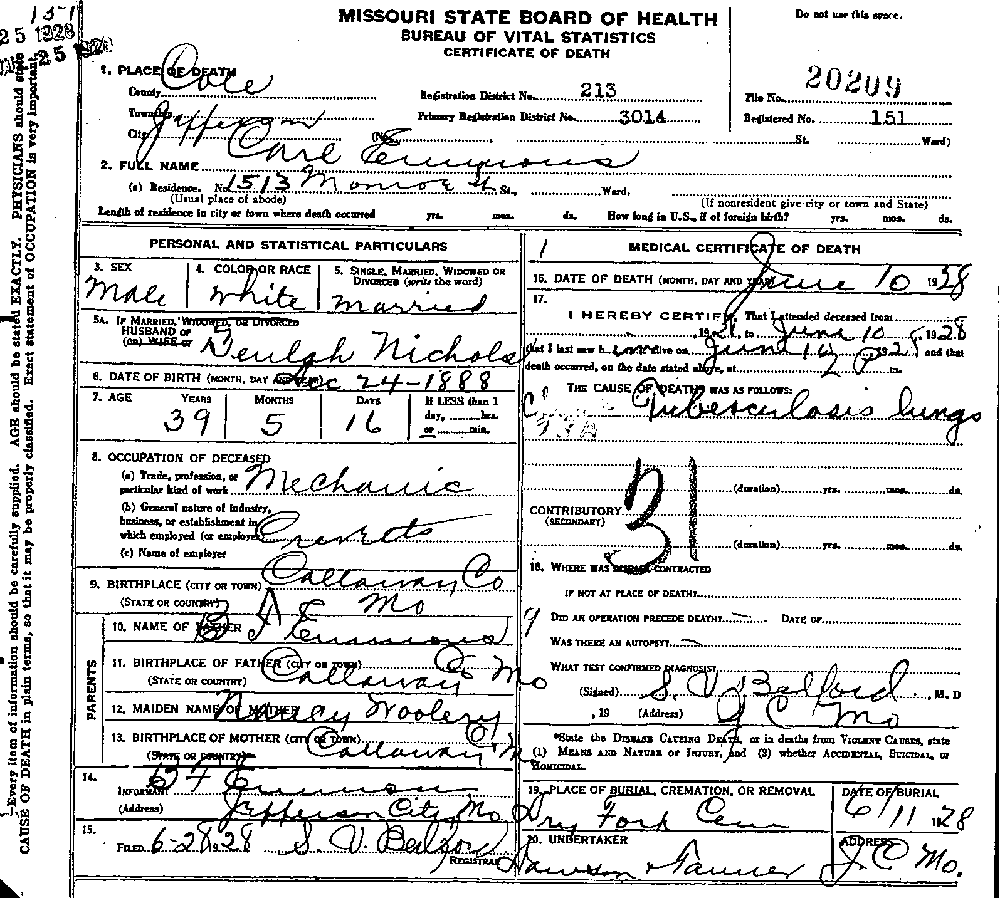 MISSOURI STATE BOARD OF HEALTH
BUREAU OF VITAL STATISTICS
CERTIFICATE OF DEATH
Do not use this space.
25 1928
1. PLACE OF DEATH
County Cole
Registration District No. 213
File No. 20209
Township Jefferson
Primary Registration District No. 3014
Registered No. 151
City (No. St. Ward)
2. FULL NAME Carl Emmons
(a) Residence. No. 1513 Monroe St. St., Ward,
(Usual place of abode) (If nonresident give city or town and State)
Length of residence in city or town where death occurred yrs. mos. ds. How long in U.S., if of foreign birth? yrs. mos. ds.
PERSONAL AND STATISTICAL PARTICULARS
3. SEX Male
4. COLOR OR RACE White
5. SINGLE, MARRIED, WIDOWED OR DIVORCED (write the word) Married
5A. IF MARRIED, WIDOWED, OR DIVORCED
HUSBAND OF
(OR) WIFE OF Beulah Nichols
6. DATE OF BIRTH (MONTH, DAY AND YEAR) Dec 24-1888
7. AGE YEARS 39 MONTHS 5 DAYS 16
If LESS than 1
day, hrs.
or min.
8. OCCUPATION OF DECEASED
(a) Trade, profession, or
particular kind of work Mechanic
(b) General nature of industry,
business, or establishment in
which employed (or employer)
(c) Name of employer
9. BIRTHPLACE (CITY OR TOWN) Callaway Co
(STATE OR COUNTRY) Mo
PARENTS
10. NAME OF FATHER B F Emmons
11. BIRTHPLACE OF FATHER (CITY OR TOWN) Callaway Co Mo
(STATE OR COUNTRY)
12. MAIDEN NAME OF MOTHER Nancy Woolery
13. BIRTHPLACE OF MOTHER (CITY OR TOWN) Callaway Co Mo
(STATE OR COUNTRY)
14.
INFORMANT B F Emmons
(Address) Jefferson City Mo
15.
FILED 6-28 1928 S. V. Belford
REGISTRAR
MEDICAL CERTIFICATE OF DEATH
16. DATE OF DEATH (MONTH, DAY AND YEAR) June 10 1928
17.
I HEREBY CERTIFY, That I attended deceased from
, 19 , to June 10, 1928
that I last saw him alive on June 10, 1928 and that
death occurred, on the date stated above, at 2 P m.
THE CAUSE OF DEATH* WAS AS FOLLOWS:
Tuberculosis lungs
(duration) yrs. mos. ds.
CONTRIBUTORY
(SECONDARY)
31
(duration) yrs. mos. ds.
18. WHERE WAS DISEASE CONTRACTED
IF NOT AT PLACE OF DEATH?
DID AN OPERATION PRECEDE DEATH? DATE OF
WAS THERE AN AUTOPSY?
WHAT TEST CONFIRMED DIAGNOSIS?
(Signed) S. V. Belford, M. D
, 19 (Address) J C Mo
*State the DISEASE CAUSING DEATH, or in deaths from VIOLENT CAUSES, state
(1) MEANS AND NATURE OF INJURY, and (2) whether ACCIDENTAL, SUICIDAL, or
HOMICIDAL.
19. PLACE OF BURIAL, CREMATION, OR REMOVAL
Dry Fork Cem
DATE OF BURIAL
6/11 1928
20. UNDERTAKER
Dawson & Tanner
ADDRESS
J. C. Mo.
Every item of information should be carefully supplied. AGE should be stated EXACTLY. PHYSICIANS should state
CAUSE OF DEATH in plain terms, so that it may be properly classified. Exact statement of OCCUPATION is very important.